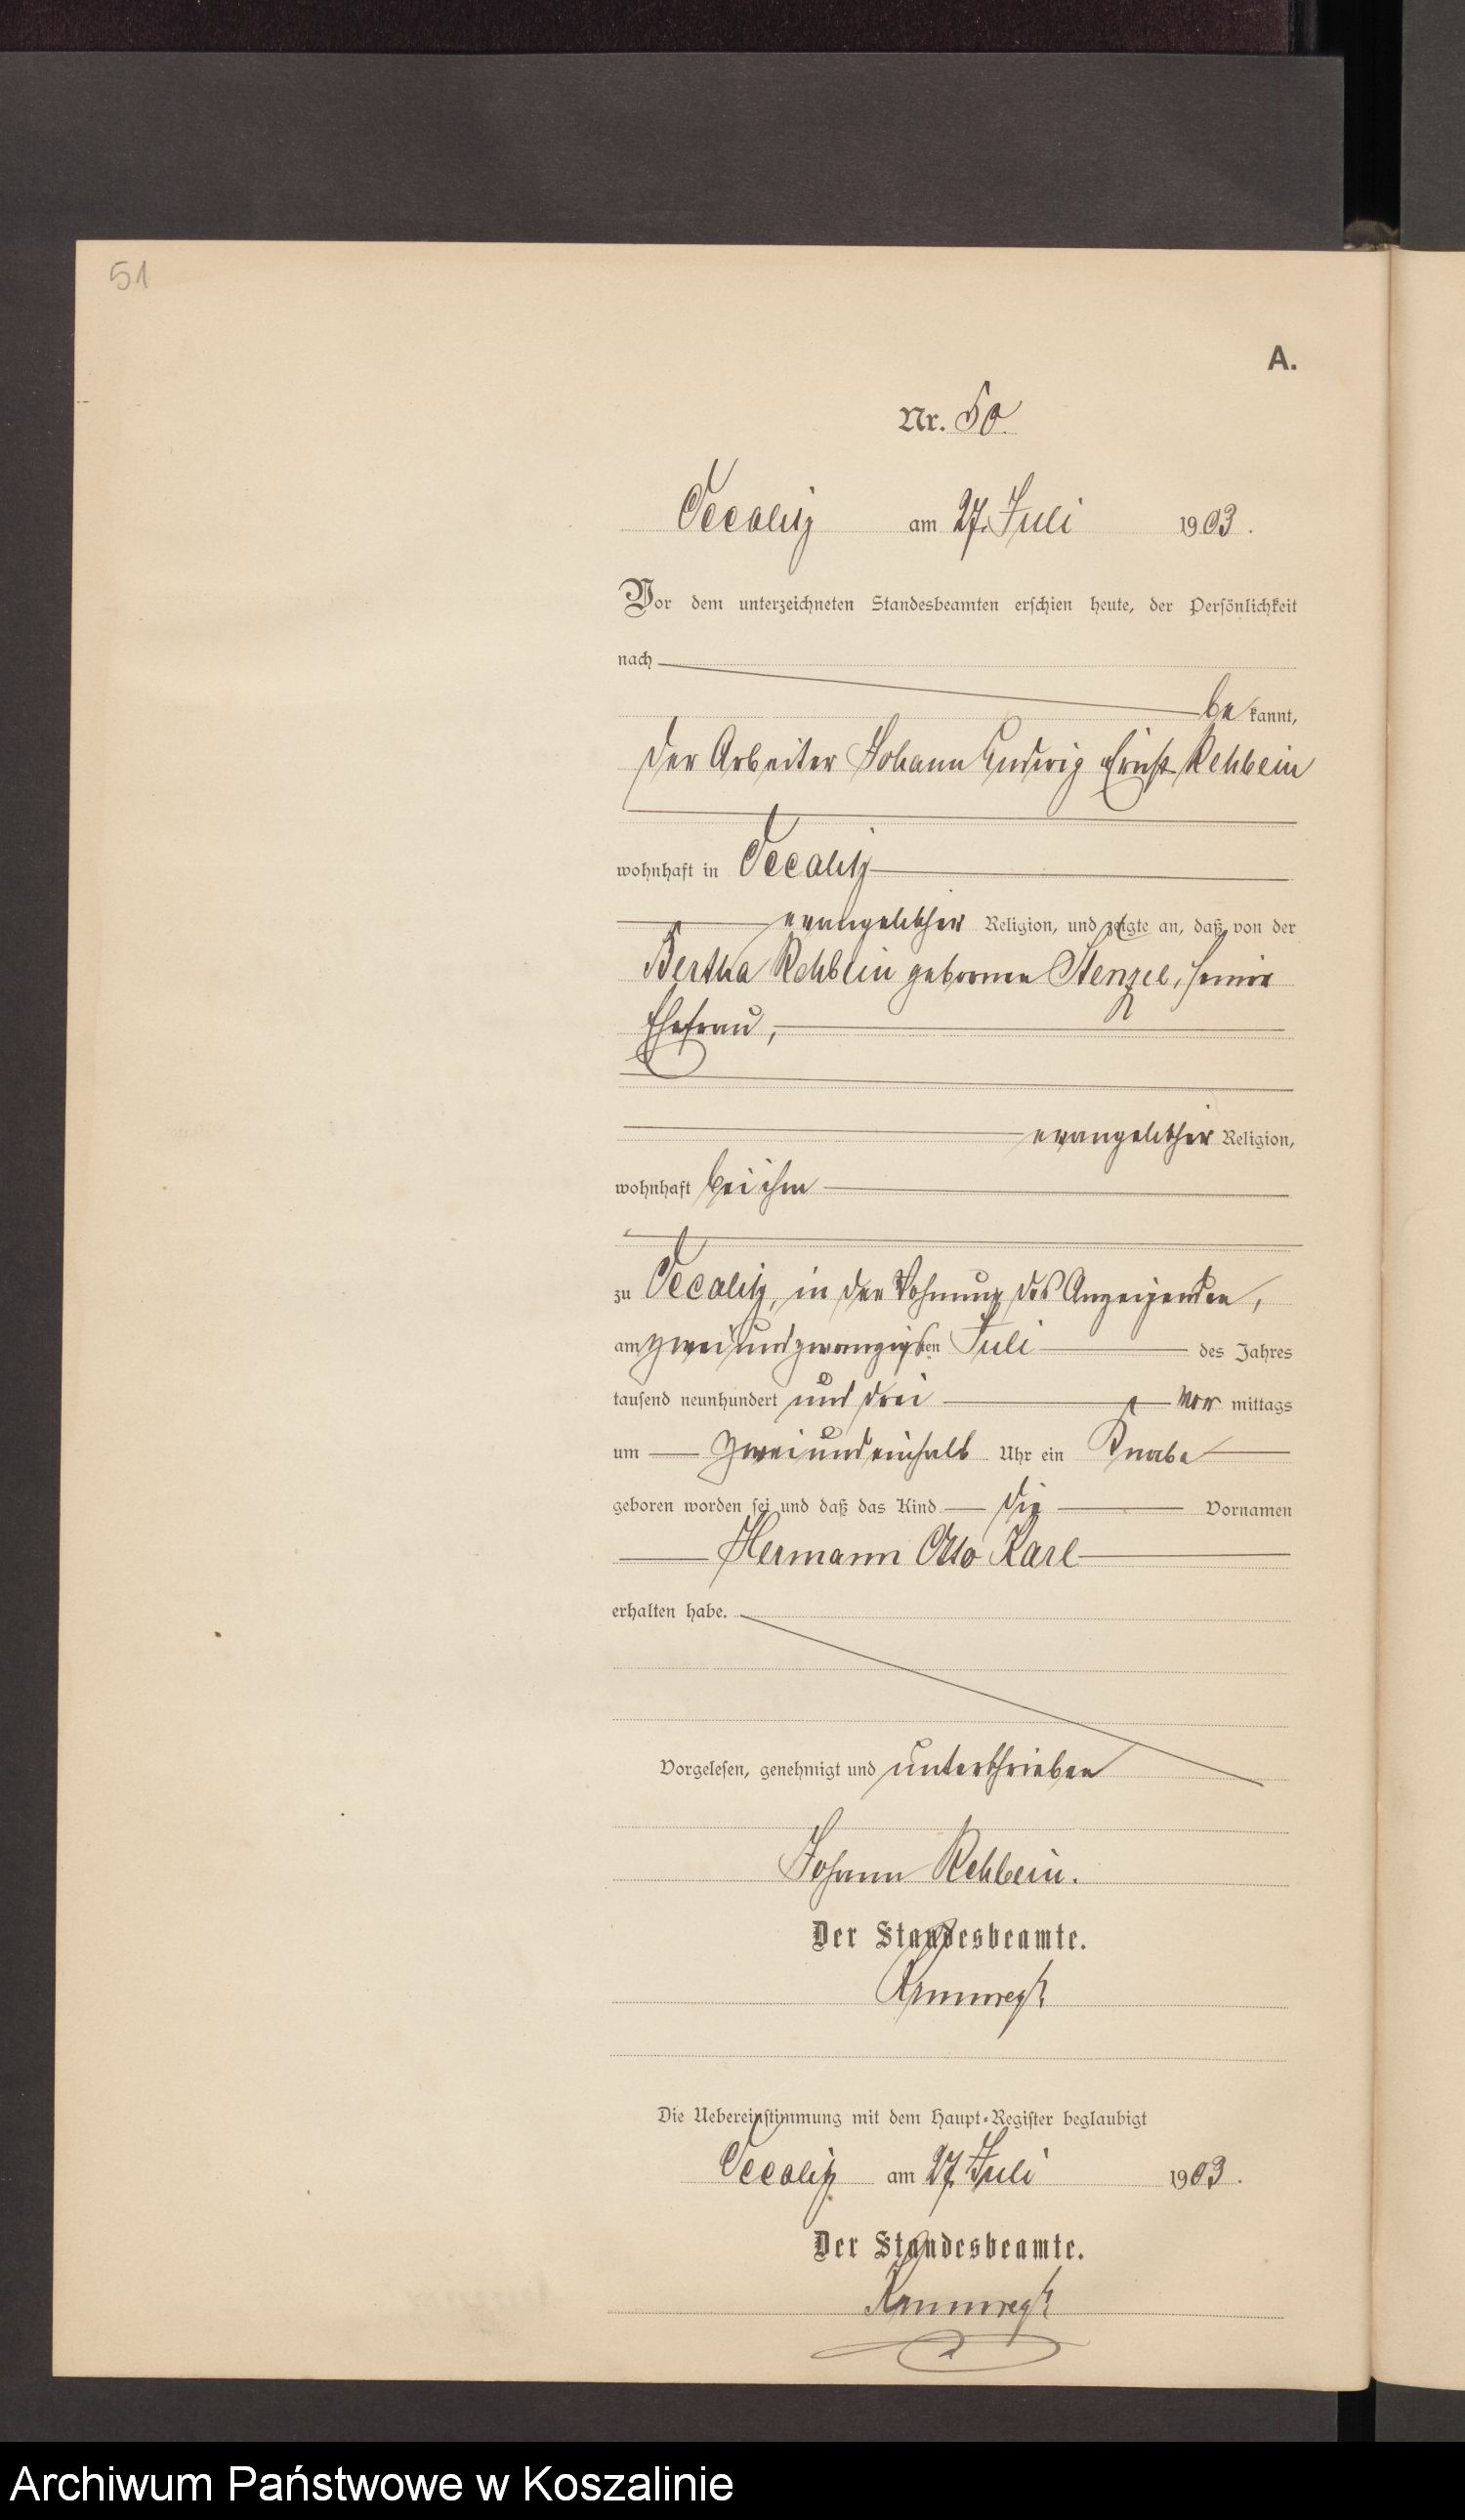 51
A.
Nr. 50.
am 27. Juli 1903.
Vor dem unterzeichneten Standesbeamten erschien heute, der Persönlichkeit
nach
be kannt,
der Arbeiter Johann Ludwig Ernst Rehbein
wohnhaft in
evangelischer Religion, und zeigte an, daß von der
Bertha Rehbein geborenen Stenzel, seiner
Ehefrau,
evangelischer Religion,
wohnhaft bei ihm
zu in der Wohnung des Anzeigenden,
am zweiundzwanzigsten Juli des Jahres
tausend neunhundert und drei vor mittags
um zweiundeinhalb Uhr ein Knabe
geboren worden sei und daß das Kind die Vornamen
Hermann Otto Karl
erhalten habe.
Vorgelesen, genehmigt und unterschrieben
Johann Rehbein.
Der Standesbeamte.
Die Uebereinstimmung mit dem Haupt-Register beglaubigt
am 27. Juli 1903.
Der Standesbeamte.
Archiwum Państwowe w Koszalinie